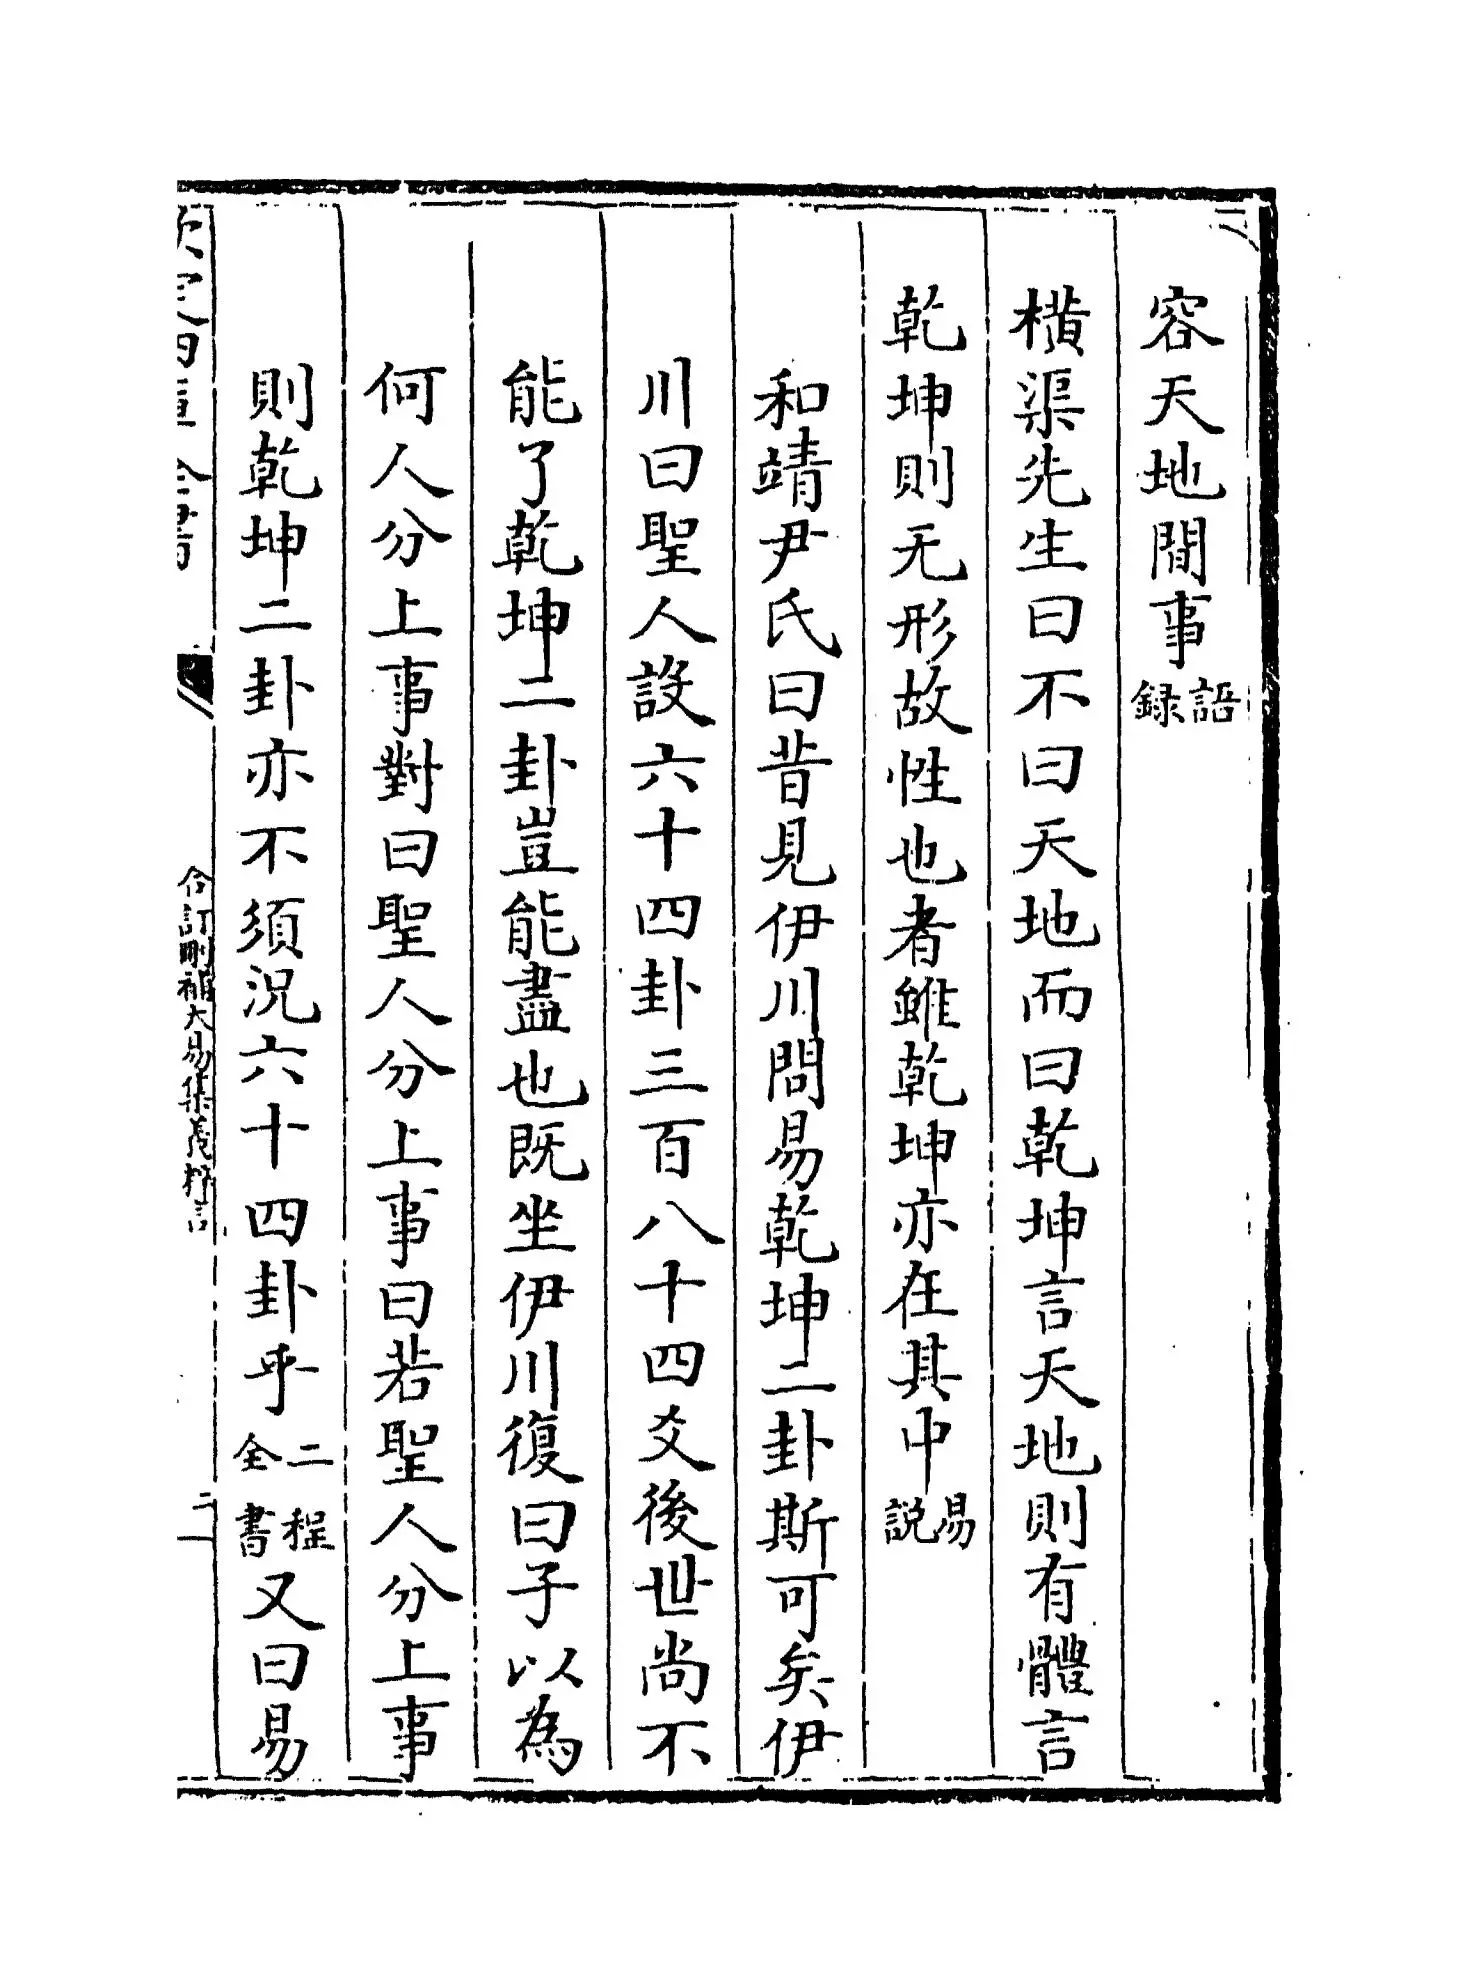 容天地間事語録
橫渠先生曰不曰天地而曰乾坤言天地則有體言
乾坤則无形故性也者雖乾坤亦在其中易説
和靖尹氏曰昔見伊川問易乾坤二卦斯可矣伊
川曰聖人設六十四卦三百八十四爻後世尚不
能了乾坤二卦豈能盡也既坐伊川復曰子以為
何人分上事對曰聖人分上事曰若聖人分上事
則乾坤二卦亦不須況六十四卦乎二程全書又曰易
欽定四庫全書
合訂刪補大易集義粹言
二